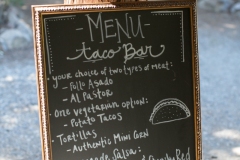 - MENU -
taco Bar
your choice of two types of meat:
- Pollo Asado
- Al Pastor
One vegetarian option:
- Potato Tacos
Tortillas
- Authentic Mini Corn
Salsa:
Red